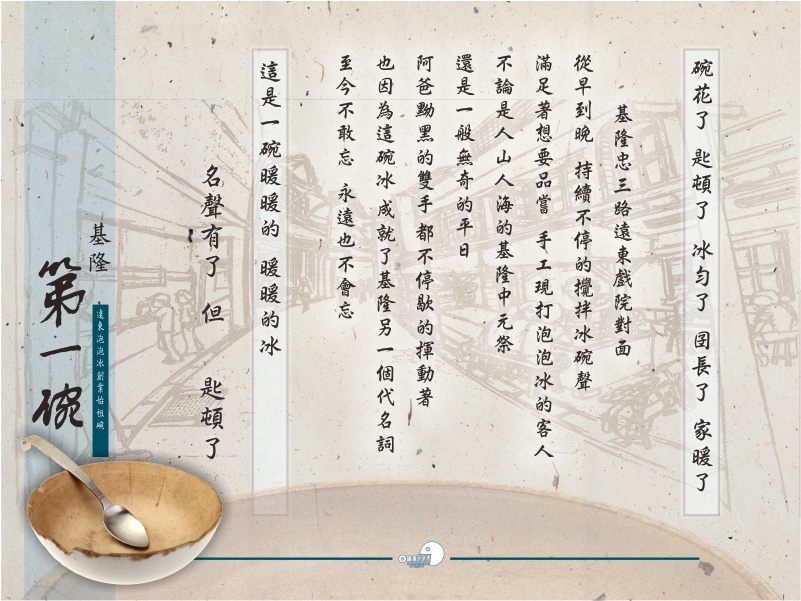 碗花了 匙頓了 冰勻了 囝長了 家暖了
基隆忠三路遠東戲院對面
從早到晚 持續不停的攪拌冰碗聲
滿足著想要品嘗 手工現打泡泡冰的客人
不論是人山人海的基隆中元祭
還是一般無奇的平日
阿爸黝黑的雙手都不停歇的揮動著
也因為這碗冰成就了基隆另一個代名詞
至今不敢忘 永遠也不會忘
這是一碗暖暖的 暖暖的冰
名聲有了 但 匙頓了
基隆
遠東泡泡冰創業始祖碗
第一碗